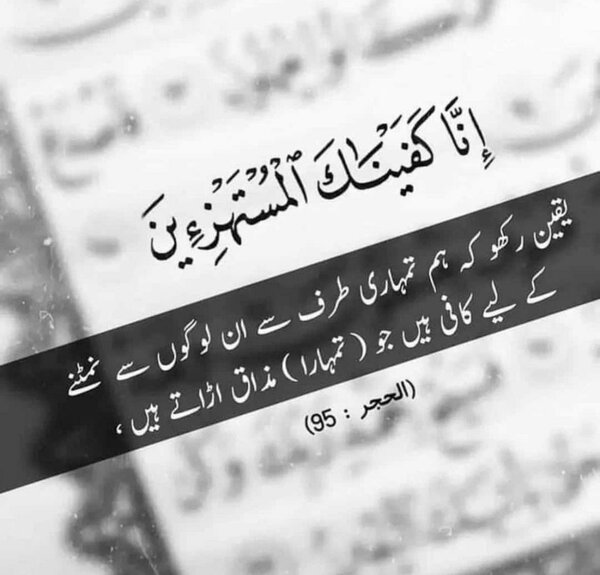 إِنَّا كَفَيْنَاكَ ٱلْمُسْتَهْزِءِينَ
یقین رکھو کہ ہم تمہاری طرف سے ان لوگوں سے نمٹنے
کے لیے کافی ہیں جو (تمہارا) مذاق اڑاتے ہیں،
(الحجر : 95)